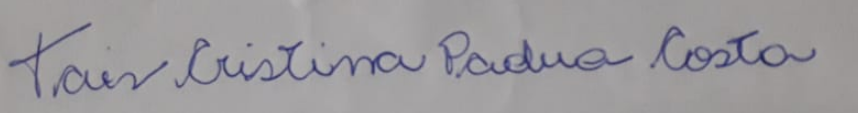 Tais Cristina Padua Costa